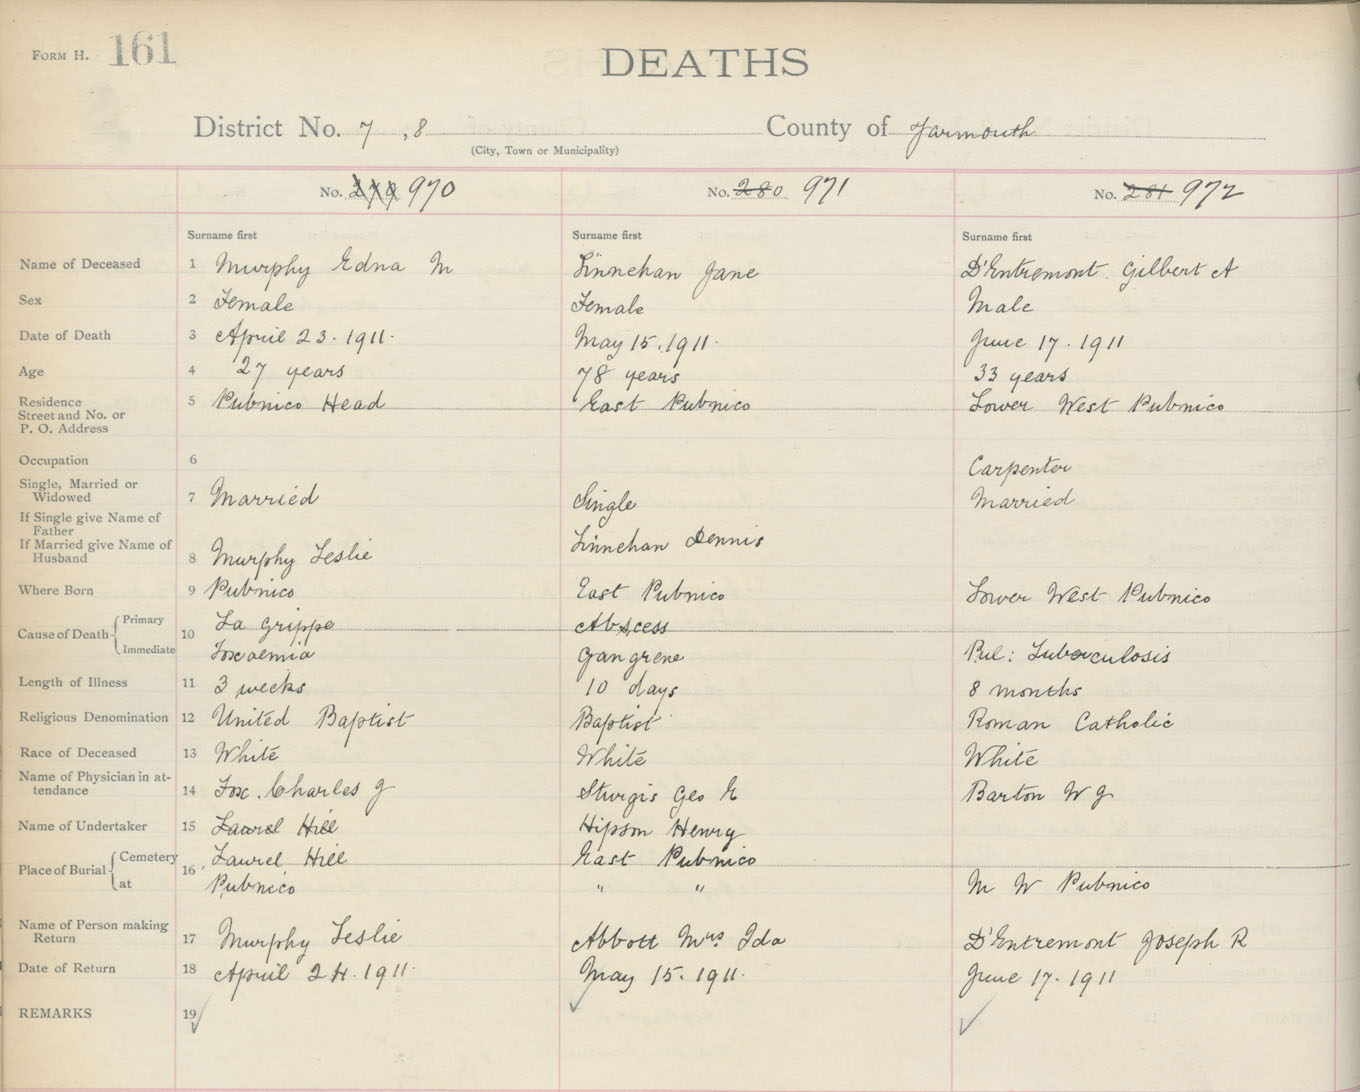 FORM H. 161
DEATHS
District No. 7 , 8 County of Yarmouth
(City, Town or Municipality)
No. 279 970 No. 280 971 No. 281 972
Surname first Surname first Surname first
Name of Deceased 1 Murphy Edna M Linnehan Jane D'Entremont Gilbert A
Sex 2 Female Female Male
Date of Death 3 April 23. 1911. May 15. 1911. June 17. 1911
Age 4 27 years 78 years 33 years
Residence 5 Pubnico Head East Pubnico Lower West Pubnico
Street and No. or
P. O. Address
Occupation 6 Carpenter
Single, Married or
Widowed 7 Married Single Married
If Single give Name of
Father
If Married give Name of Linnehan Dennis
Husband 8 Murphy Leslie
Where Born 9 Pubnico East Pubnico Lower West Pubnico
Primary La grippe Abscess
Cause of Death 10
Immediate Toxaemia Gangrene Pul: Tuberculosis
Length of Illness 11 3 weeks 10 days 8 months
Religious Denomination 12 United Baptist Baptist Roman Catholic
Race of Deceased 13 White White White
Name of Physician in at-
tendance 14 Fox. Charles J Sturgis Geo E Barton W J
Name of Undertaker 15 Laurel Hill Hipson Henry
Cemetery Laurel Hill East Pubnico
Place of Burial 16
at Pubnico " " M W Pubnico
Name of Person making
Return 17 Murphy Leslie Abbott Mrs Ida D'Entremont Joseph R
Date of Return 18 April 24. 1911. May 15. 1911. June 17. 1911
REMARKS 19